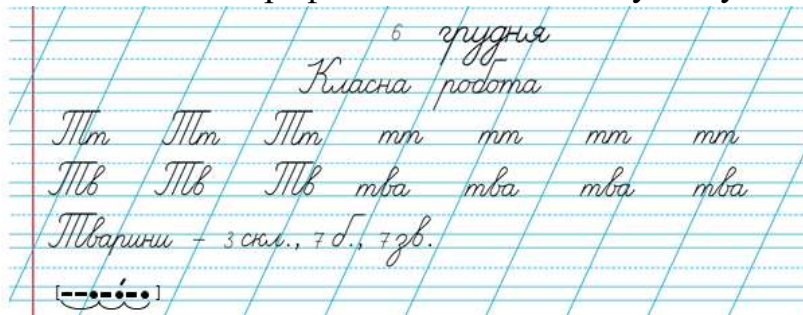 6 грудня
Класна робота
Тт Тт Тт тт тт тт тт
Тв Тв Тв тва тва тва тва
Тварини – 3 скл., 7 б., 7 зв.
[––•–•́–•]